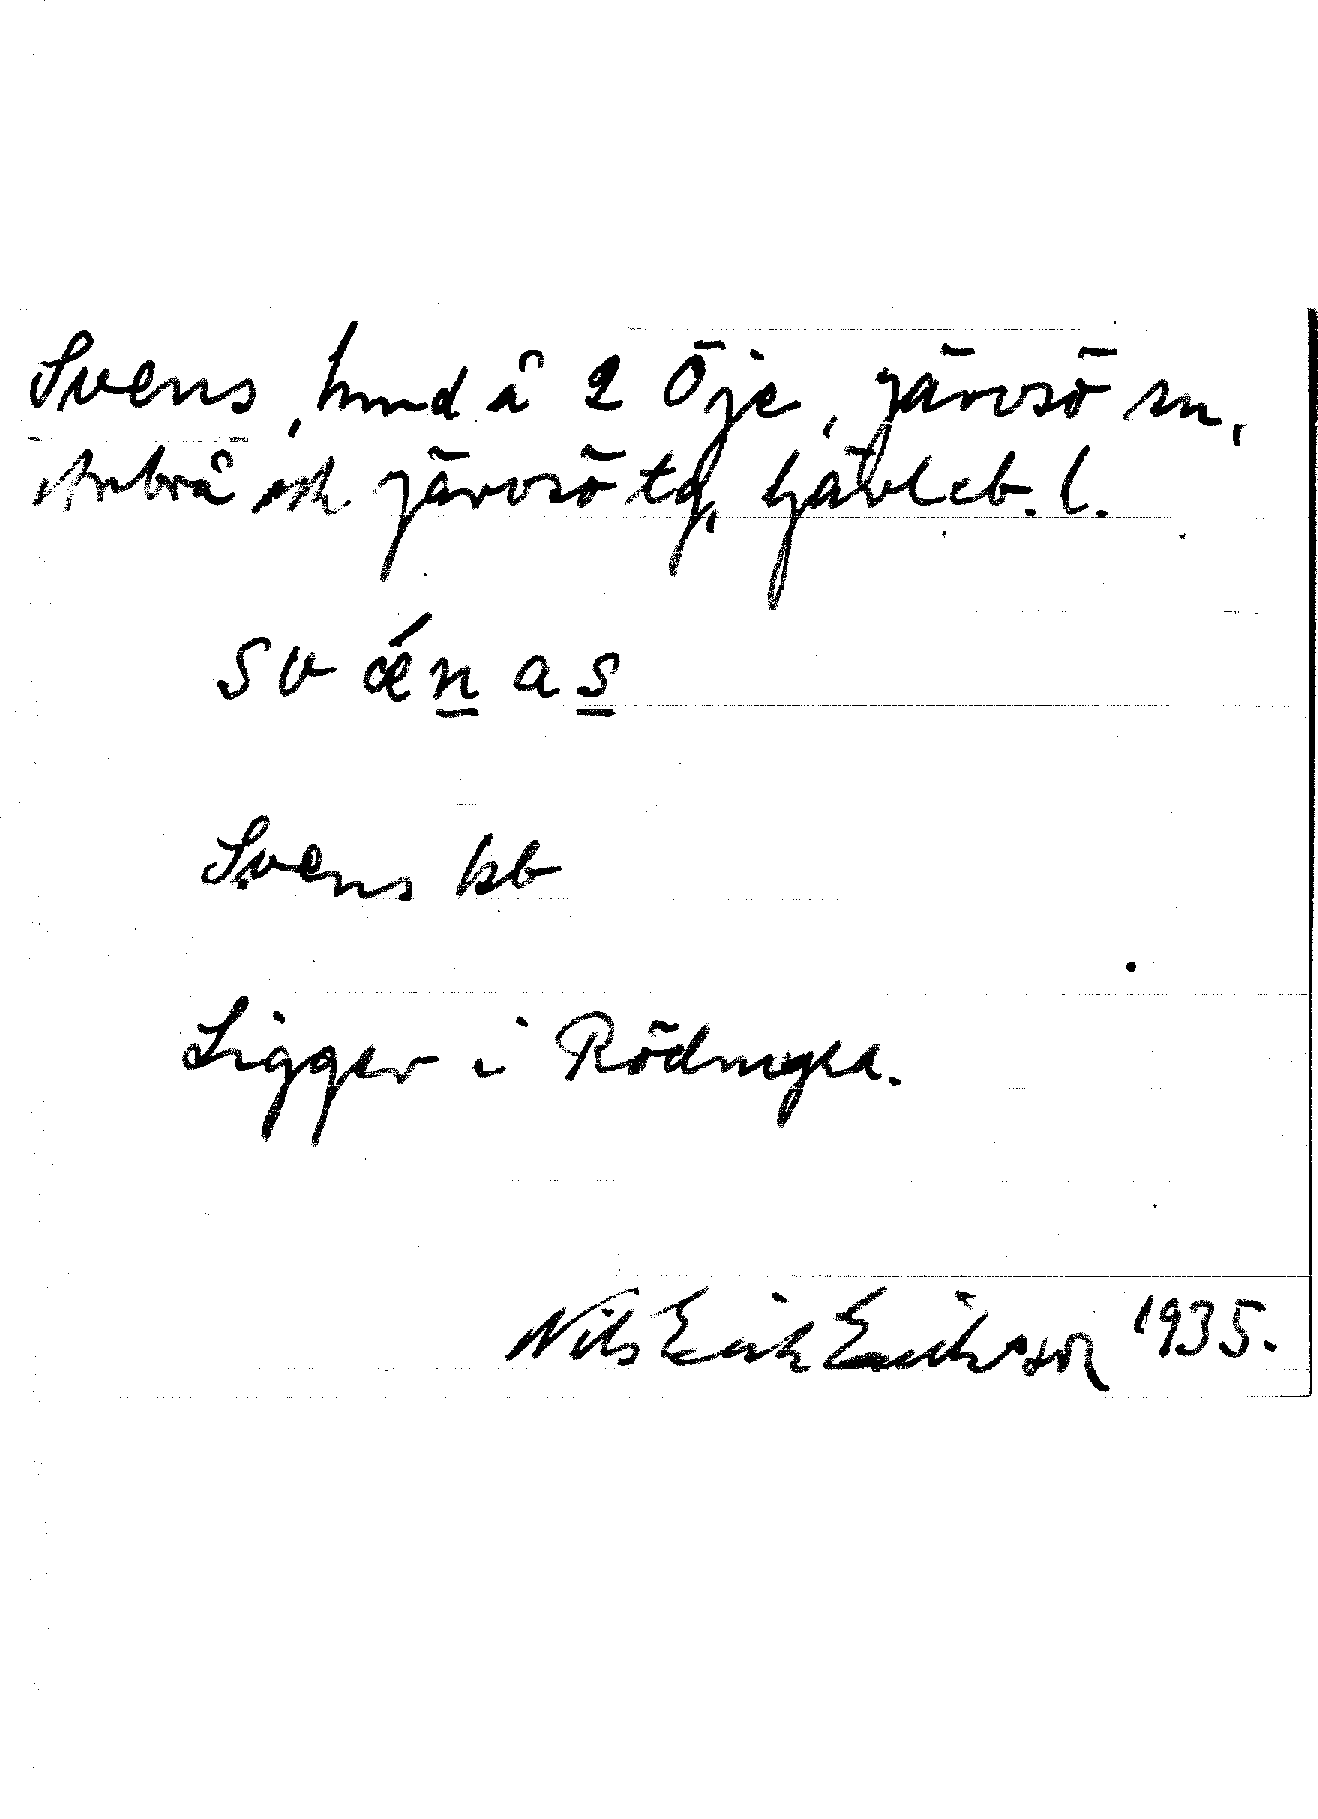 Svens, hmd å 2 Öje, Järvsö sn,
Arbrå och Järvsö tg, Gävleb. l.
sv ǽn̲ a s̲
Svens kb
Ligger i Rödmyra.
Nils Erik Eriksson 1935.